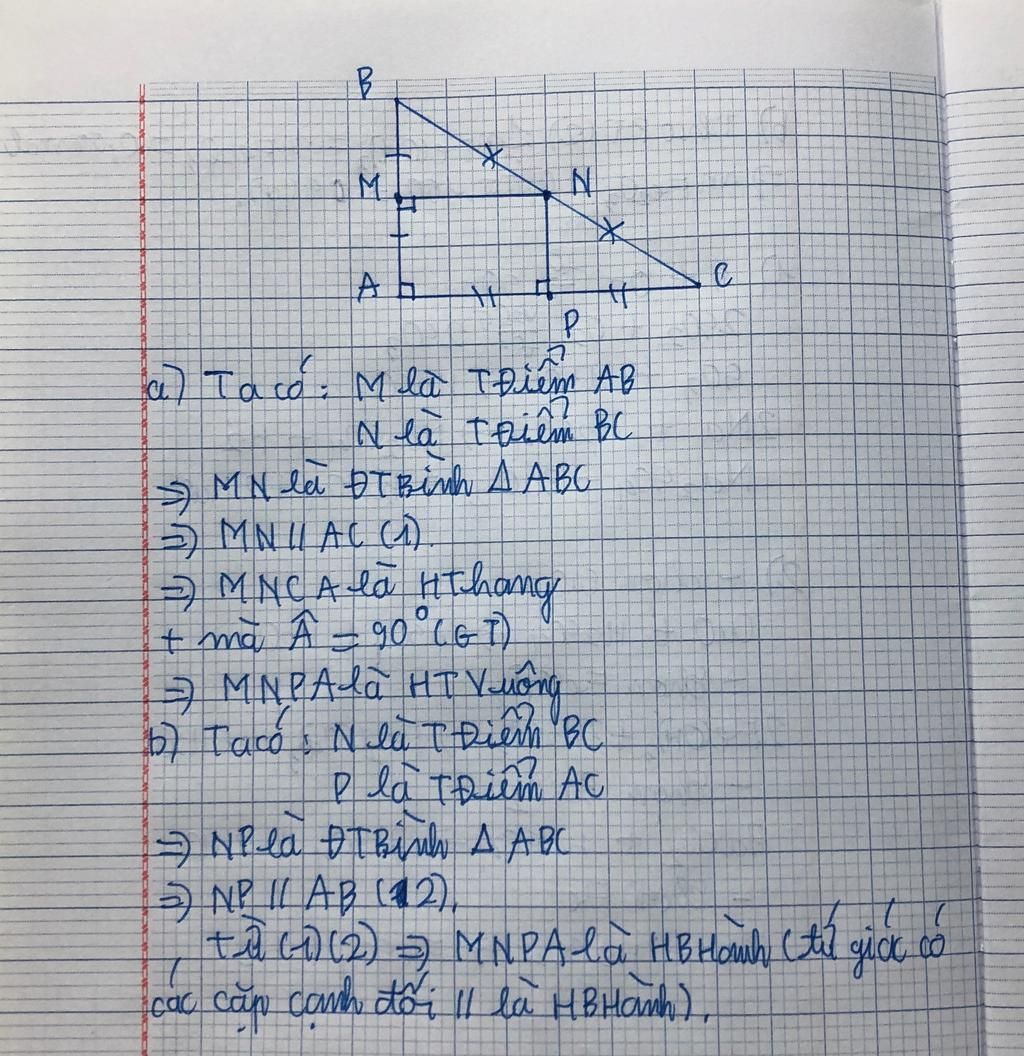 B
M
N
A
C
P
a) Ta có: M là TĐiểm AB
N là TĐiểm BC
=> MN là ĐTBình Δ ABC
=> MN // AC (1).
=> MNCA là HThang
+ mà Â = 90° (GT)
=> MNPA là HTVuông
b) Ta có: N là TĐiểm BC
P là TĐiểm AC
=> NP là ĐTBình Δ ABC
=> NP // AB (2).
từ (1)(2) => MNPA là HBHành (tứ giác có
các cặp cạnh đối // là HBHành).